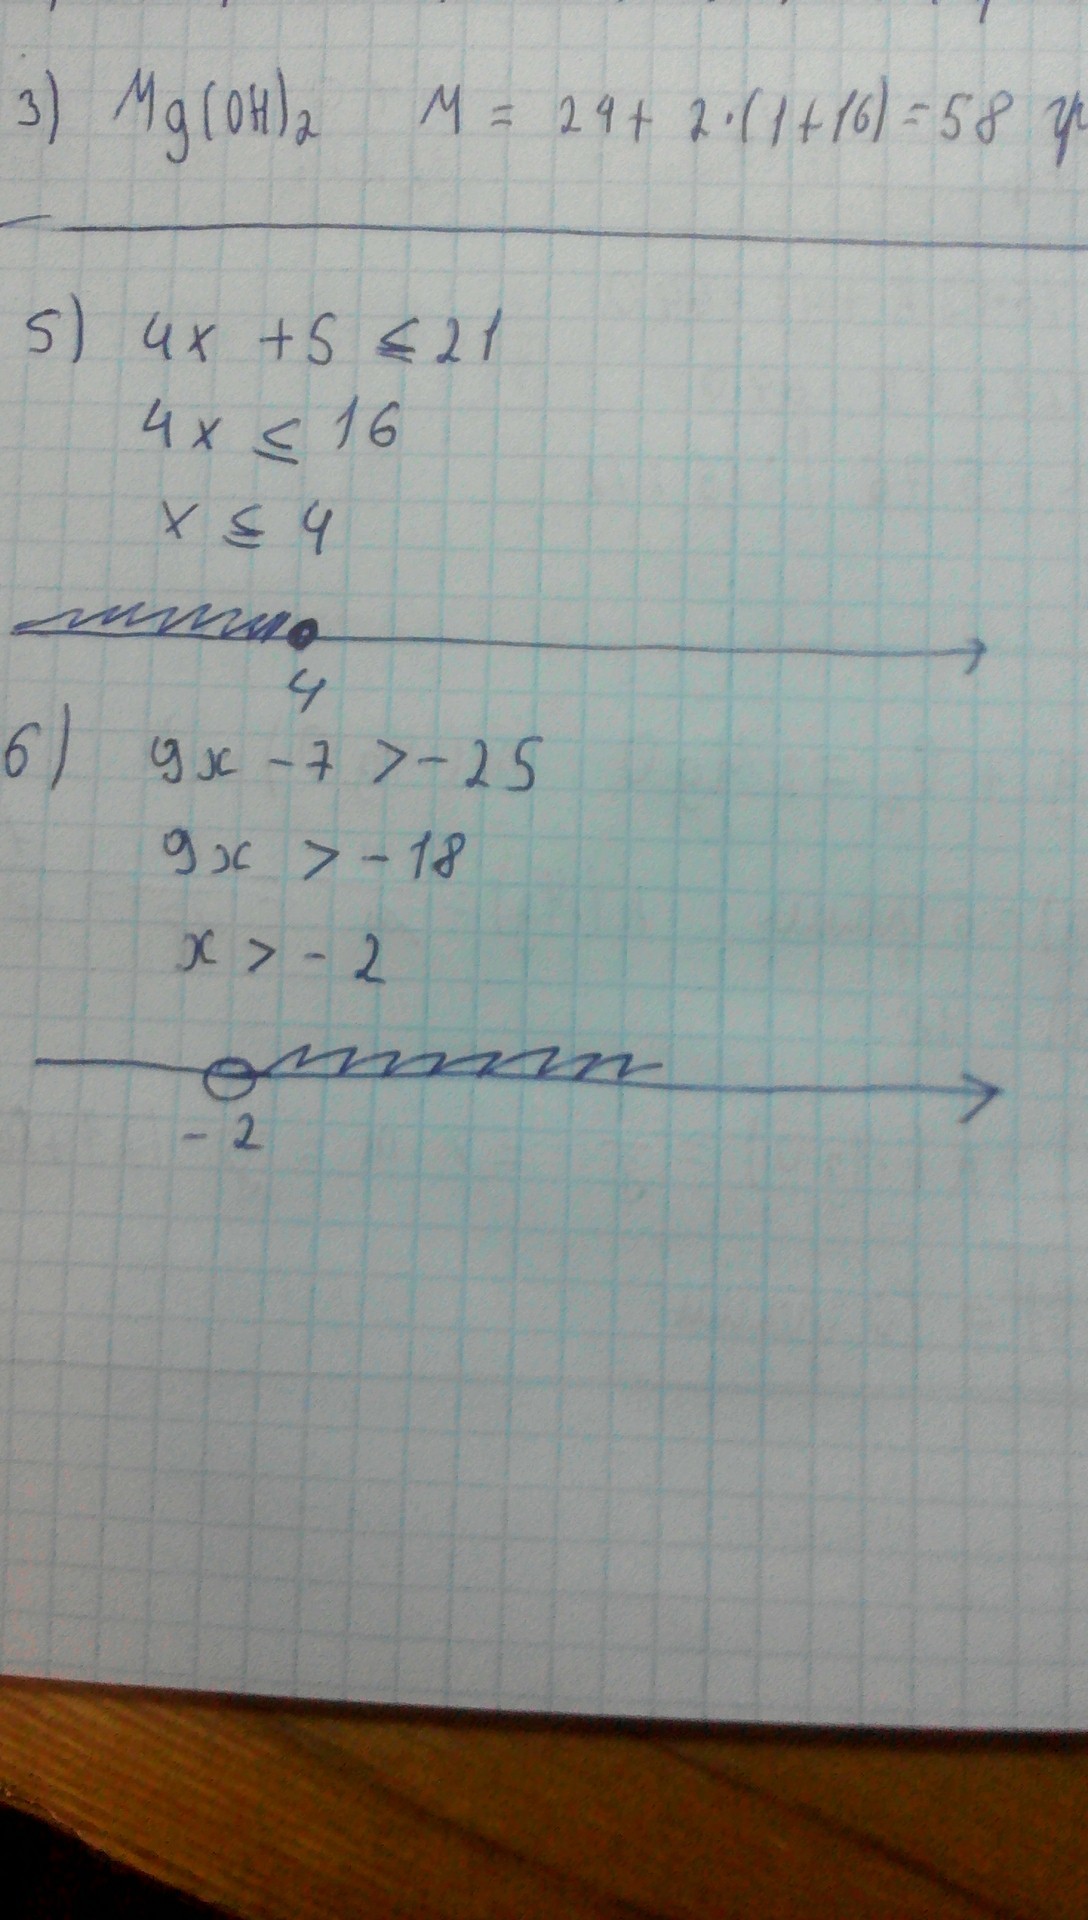 3) Mg(OH)₂ M = 24 + 2·(1+16) = 58
5) 4x + 5 ≤ 21
4x ≤ 16
x ≤ 4
4
6) 9x - 7 > - 25
9x > - 18
x > - 2
- 2